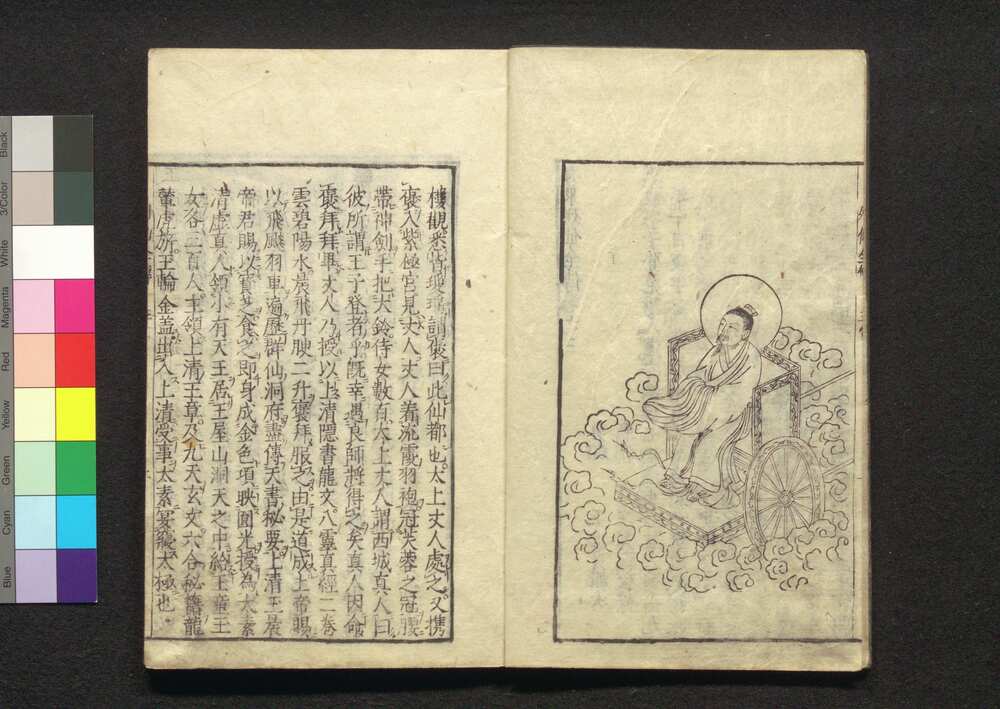 樓觀悉皆瓊瑤謂褒曰此仙都也太上丈人處之又携
褒入紫極宮見丈人丈人着流霞羽袍冠芙蓉之冠腰
帶神劍手把火鈴侍女數百太上丈人謂西城真人曰
彼所謂王子登者乎旣幸遇良師將得之矣真人因命
褒拜拜畢丈人乃授以上清隱書龍文八靈真經二卷
雲碧陽水晨飛丹腴二升褒拜服之由是道成上帝賜
以飛飈羽車遍歷群仙洞府盡傳天書秘要上清玉晨
帝君賜以寶芝食之即身成金色項映圓光授為太素
清虛真人領小有天王居王屋山洞天之中給玉童玉
女各三百人主領上清玉章及九天玄文六合秘籍龍
輦虎旂玉輪金盖出入上清受事太素宴寢太極也
Black
3/Color
White
Magenta
Red
Yellow
Green
Cyan
Blue